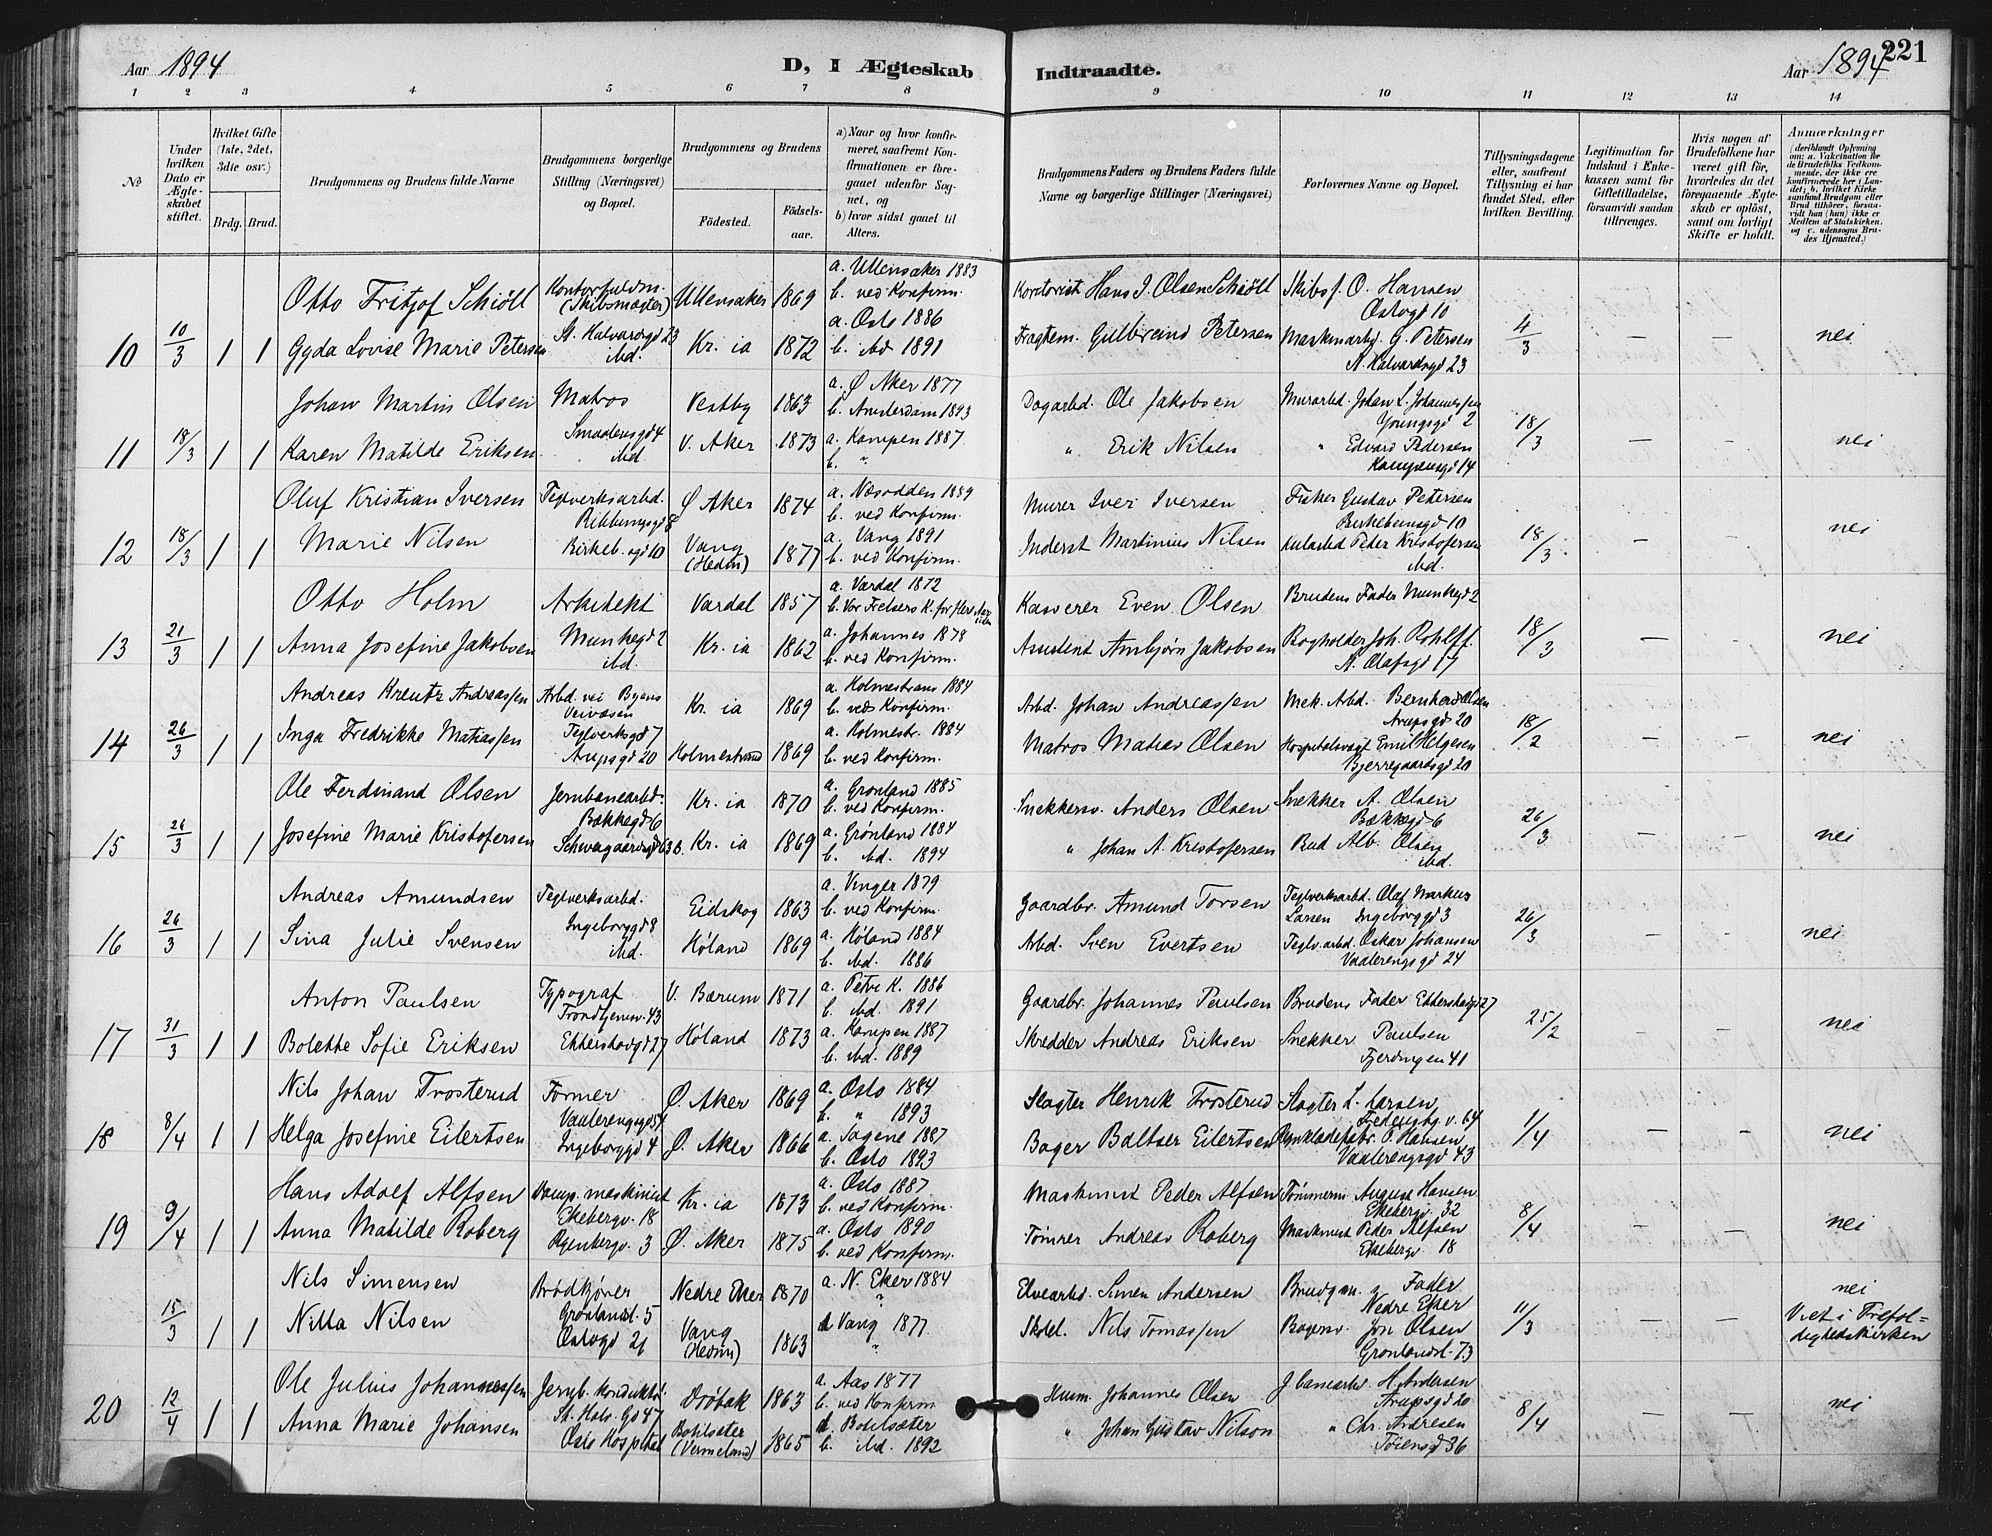 Aar 1894
D, I Ægteskab Indtraadte.
Aar 1894
221
1 2 3 4 5 6 7 8 9 10 11 12 13 14
№
Under hvilken Dato er Ægteskabet stiftet.
Hvilket Gifte (1ste, 2det, 3die osv.)
Brdg. Brud.
Brudgommens og Brudens fulde Navne
Brudgommens borgerlige Stilling (Næringsvei) og Bopæl.
Brudgommens og Brudens
Fødested.
Fødselsaar.
a) Naar og hvor konfirmeret, saafremt Konfirmationen er foregaaet udenfor Sognet, og
b) hvor sidst gaaet til Alters.
Brudgommens Faders og Brudens Faders fulde Navne og borgerlige Stillinger (Næringsvei)
Forlovernes Navne og Bopæl.
Tillysningsdagene eller, saafremt Tillysning ei har fundet Sted, efter hvilken Bevilling.
Legitimation for Indskud i Enkekassen samt for Giftetilladelse, forsaavidt saadan tiltrænges.
Hvis nogen af Brudefolkene har været gift før, hvorledes da det foregaaende Ægteskab er opløst, samt om lovligt Skifte er holdt.
Anmærkninger (deriblandt Oplysning om: a. Vakcination for de Brudefolks Vedkommende, der ikke ere konfirmerede her i Landet; b. hvilket Kirkesamfund Brudgom eller Brud tilhører, forsaavidt han (hun) ikke er Medlem af Statskirken, og c. udensogns Brudes Hjemsted.)
Otto Fritjof Schiöll Kontorfuldm. (Skibsmægler) Ullensaker 1869 a. Ullensaker 1883 b. ved Konfirm. Kontorist Hans J. Olsen Schiöll Skibsf. O. Hansen Oslogd 10
10 10/3 1 1 Gyda Lovise Marie Petersen St. Halvardsgd 23 ibd. Kr. ia 1872 a. Oslo 1886 b. ibd 1891 Fragtem. Gulbrand Petersen Maskinarbd. G. Petersen St. Halvardsgd 23 4/3 — — nei
Johan Martin Olsen Matros Vestby 1863 a. Ø Aker 1877 b. Amsterdam 1893 Dagarbd. Ole Jakobsen Murarbd. Johan L. Johannessen Youngsgd 2
11 18/3 1 1 Karen Matilde Eriksen Smaalensgd 4 ibd. V. Aker 1873 a. Kampen 1887 b. " " Erik Nilsen " Edvard Pedersen Kampensgd 14 18/3 — — nei
Oluf Kristian Iversen Teglverksarbd. Ribbungsgd 8 Ø Aker 1874 a. Næsodden 1889 b. ved Konfirm. Murer Iver Iversen Fisker Gustav Petersen Birkebeinsgd 10
12 18/3 1 1 Marie Nilsen Birkeb.sgd 10 Vang (Hedm) 1877 a. Vang 1891 b. ved Konfirm. Inderst Martinius Nilsen Kularbd Peder Kristofersen ibd. 18/3 — — nei
Otto Holm Arkitekt Vardal 1857 a. Vardal 1872 b. Vor Frelsers K. for flere Aar siden Kasserer Even Olsen Brudens Fader Munkegd 2
13 21/3 1 1 Anna Josefine Jakobsen Munkegd 2 ibd. Kr. ia 1862 a. Johannes 1878 b. ved Konfirm. Assistent Arnbjørn Jakobsen Bogholder Joh. Rohlff. St. Olafsgd 17 18/3 — — nei
Andreas Kreutz Andreassen Arbd. vei Byens Veivæsen Kr. ia 1869 a. Holmestrand 1884 b. ved Konfirm. Arbd. Johan Andreassen Mek. Arbd. Bernhard Olsen Arupsgd 20
14 26/3 1 1 Inga Fredrikke Matiassen Teglverksgd 7 Arupsgd 20 Holmestrand 1869 a. Holmestr. 1884 b. ved Konfirm. Matros Matias Olsen Hospitalsvagt Emil Helgesen Bjerregaardsgd 20 18/2 — — nei
Ole Ferdinand Olsen Jernbanearbd. Bækkegd 6 Kr. ia 1870 a. Grönland 1885 b. ved Konfirm. Snekkersv. Anders Olsen Snekker A. Olsen Bækkegd 6
15 26/3 1 1 Josefine Marie Kristofersen Schweigaardsgd 63 b. Kr. ia 1869 a. Grönland 1884 b. ibd. 1894 " Johan A. Kristofersen Bud Alb. Olsen ibd. 26/3 — — nei
Andreas Amundsen Teglverksarbd. Ingeborggd 8 Eidskog 1863 a. Vinger 1879 b. ved Konfirm. Gaardbr. Amund Torsen Teglverksarbd. Olaf Markus Larsen Ingeborggd 3
16 26/3 1 1 Sina Julie Svensen ibd. Høland 1869 a. Høland 1884 b. ibd. 1886 Arbd. Sven Evertsen Teglv.arbd. Oskar Johansen Vaalerengsgd 24 26/3 — — nei
Anton Paulsen Typograf Trondhjemsv. 43 V. Bærum 1871 a. Petri K. 1886 b. ibd. 1891 Gaardbr. Johannes Paulsen Brudens Fader Etterstadgd 27
17 31/3 1 1 Bolette Sofie Eriksen Etterstadgd 27 Høland 1873 a. Kampen 1887 b. ibd. 1889 Skredder Andreas Eriksen Snekker Paulsen Fjerdingen 41 25/2 — — nei
Nils Johan Trosterud Former Vaalerengsgd 54 Ø. Aker 1869 a. Oslo 1884 b. " 1893 Slagter Henrik Trosterud Slagter L. Larsen Fredensbg. v. 64
18 8/4 1 1 Helga Josefine Eilertsen Ingeborggd 4 Ø. Aker 1866 a. Sagene 1887 b. Oslo 1893 Bager Baltser Eilertsen P. Hansen Vaalerengsgd 43 1/4 — — nei
Hans Adolf Alfsen Damps. maskinist Ekebergv. 18 Kr. ia 1873 a. Oslo 1887 b. ved Konfirm. Maskinist Peder Alfsen Tömmerm. August Hansen Ekebergv. 32
19 9/4 1 1 Anna Matilde Roberg Ryenbergv. 3 Ø. Aker 1875 a. Oslo 1890 b. ved Konfirm. Tømrer Andreas Roberg Maskinist Peder Alfsen Ekebergv 18 8/4 — — nei
Nils Simensen Brødkjører Grønlandsl. 5 Nedre Eker 1870 a. N. Eker 1884 " Elvearbd. Simen Andersen Brudgm. Fader Nedre Eker nei
15/3 1 1 Nilla Nilsen Oslogd 21 Vang (Hedm) 1863 a Vang 1877. " Skolel. Nils Tomassen Bagersv. Jon Olsen Grønlandsl. 73 11/3 — — Viet i Trefoldighedskirken
Ole Julius Johannessen Jernb. Konduktör St. Halv. Gd 47 Drøbak 1863 a. Aas 1877 b. ved Konfirm Husm. Johannes Olsen J. banearbd H. Andersen Arupsgd 20
20 12/4 1 1 Anna Marie Johansen Oslo Hospital (Vermeland) 1865 b. ibd. 1892 " Johan Gustav Nilson " Chr. Andresen Töiengd 36 8/4 — — nei